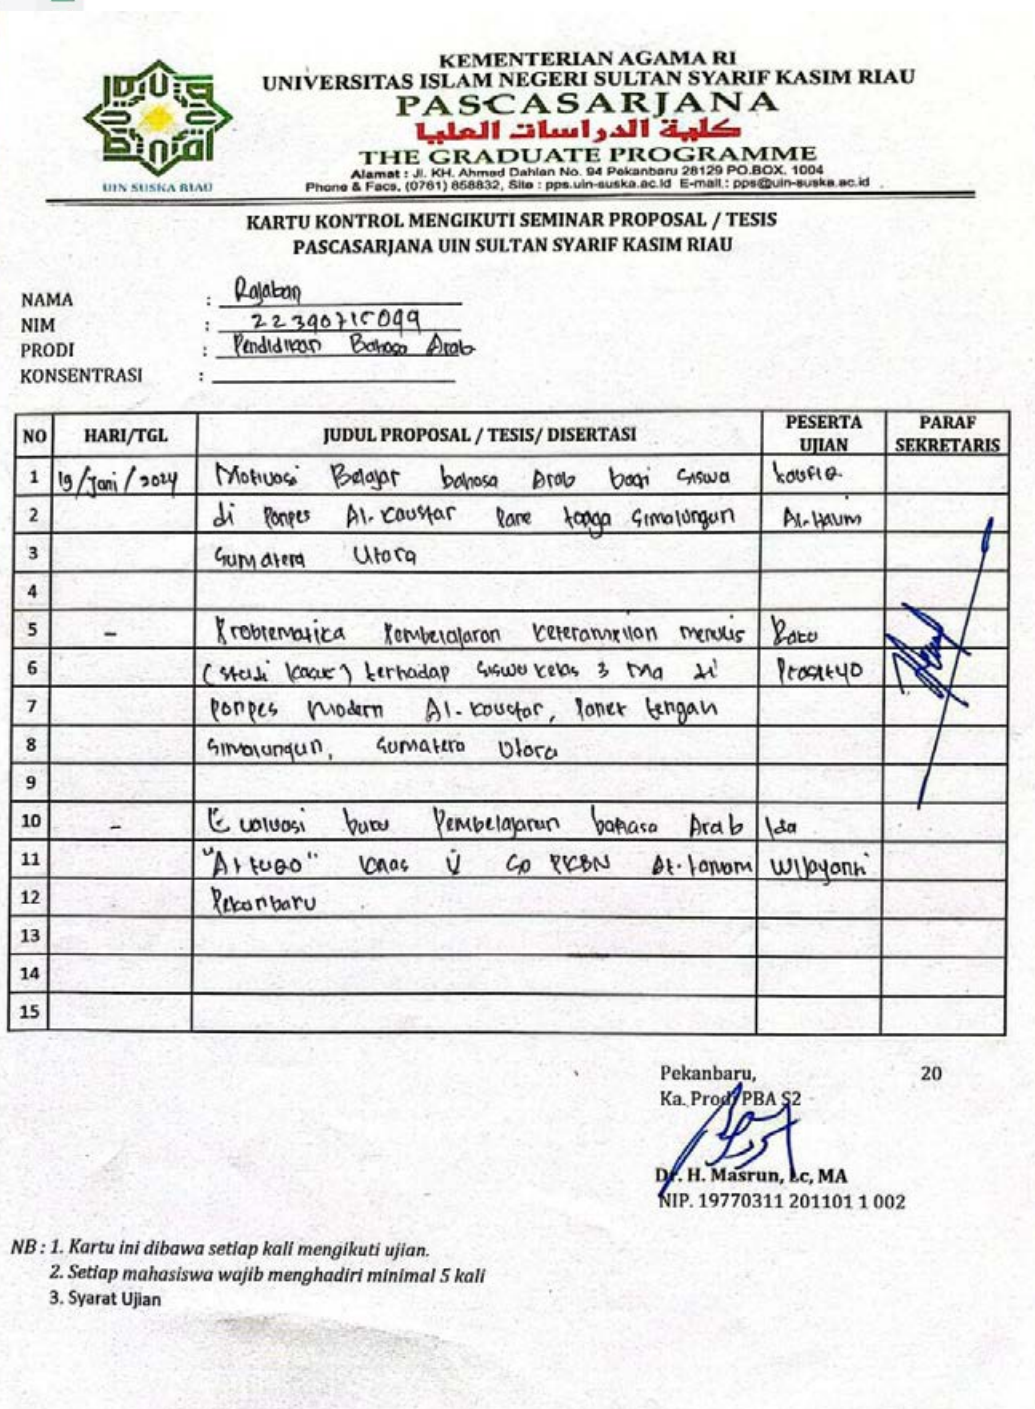 UIN SUSKA RIAU
KEMENTERIAN AGAMA RI
UNIVERSITAS ISLAM NEGERI SULTAN SYARIF KASIM RIAU
PASCASARJANA
كلية الدراسات العليا
THE GRADUATE PROGRAMME
Alamat : Jl. KH. Ahmad Dahlan No. 94 Pekanbaru 28129 PO.BOX. 1004
Phone & Facs, (0761) 858832, Site : pps.uin-suska.ac.id E-mail : pps@uin-suska.ac.id
KARTU KONTROL MENGIKUTI SEMINAR PROPOSAL / TESIS
PASCASARJANA UIN SULTAN SYARIF KASIM RIAU
NAMA : Rajaban
NIM : 22390715099
PRODI : Pendidikan Bahasa Arab
KONSENTRASI :
NO HARI/TGL JUDUL PROPOSAL / TESIS/ DISERTASI PESERTA UJIAN PARAF SEKRETARIS
1 19/Juni/2024 Motivasi Belajar bahasa Arab bagi siswa
2 di Ponpes Al-Kaustar Pane tonga Simalungun
3 Sumatera Utara
4
5 - Problematica Pembelajaran keterampilan menulis
6 (Studi kasus) terhadap siswa kelas 3 Ma di Prasetyo
7 Ponpes modern Al-kaustar, Panei tengah
8 Simalungun, Sumatera Utara
9
10 - Evaluasi buku Pembelajaran bahasa Arab Ida
11 Wijayanti
12 Pekanbaru
13
14
15
Pekanbaru, 20
Ka. Prodi PBA S2
Dr. H. Masrun, Lc, MA
NIP. 19770311 201101 1 002
NB : 1. Kartu ini dibawa setiap kali mengikuti ujian.
2. Setiap mahasiswa wajib menghadiri minimal 5 kali
3. Syarat Ujian